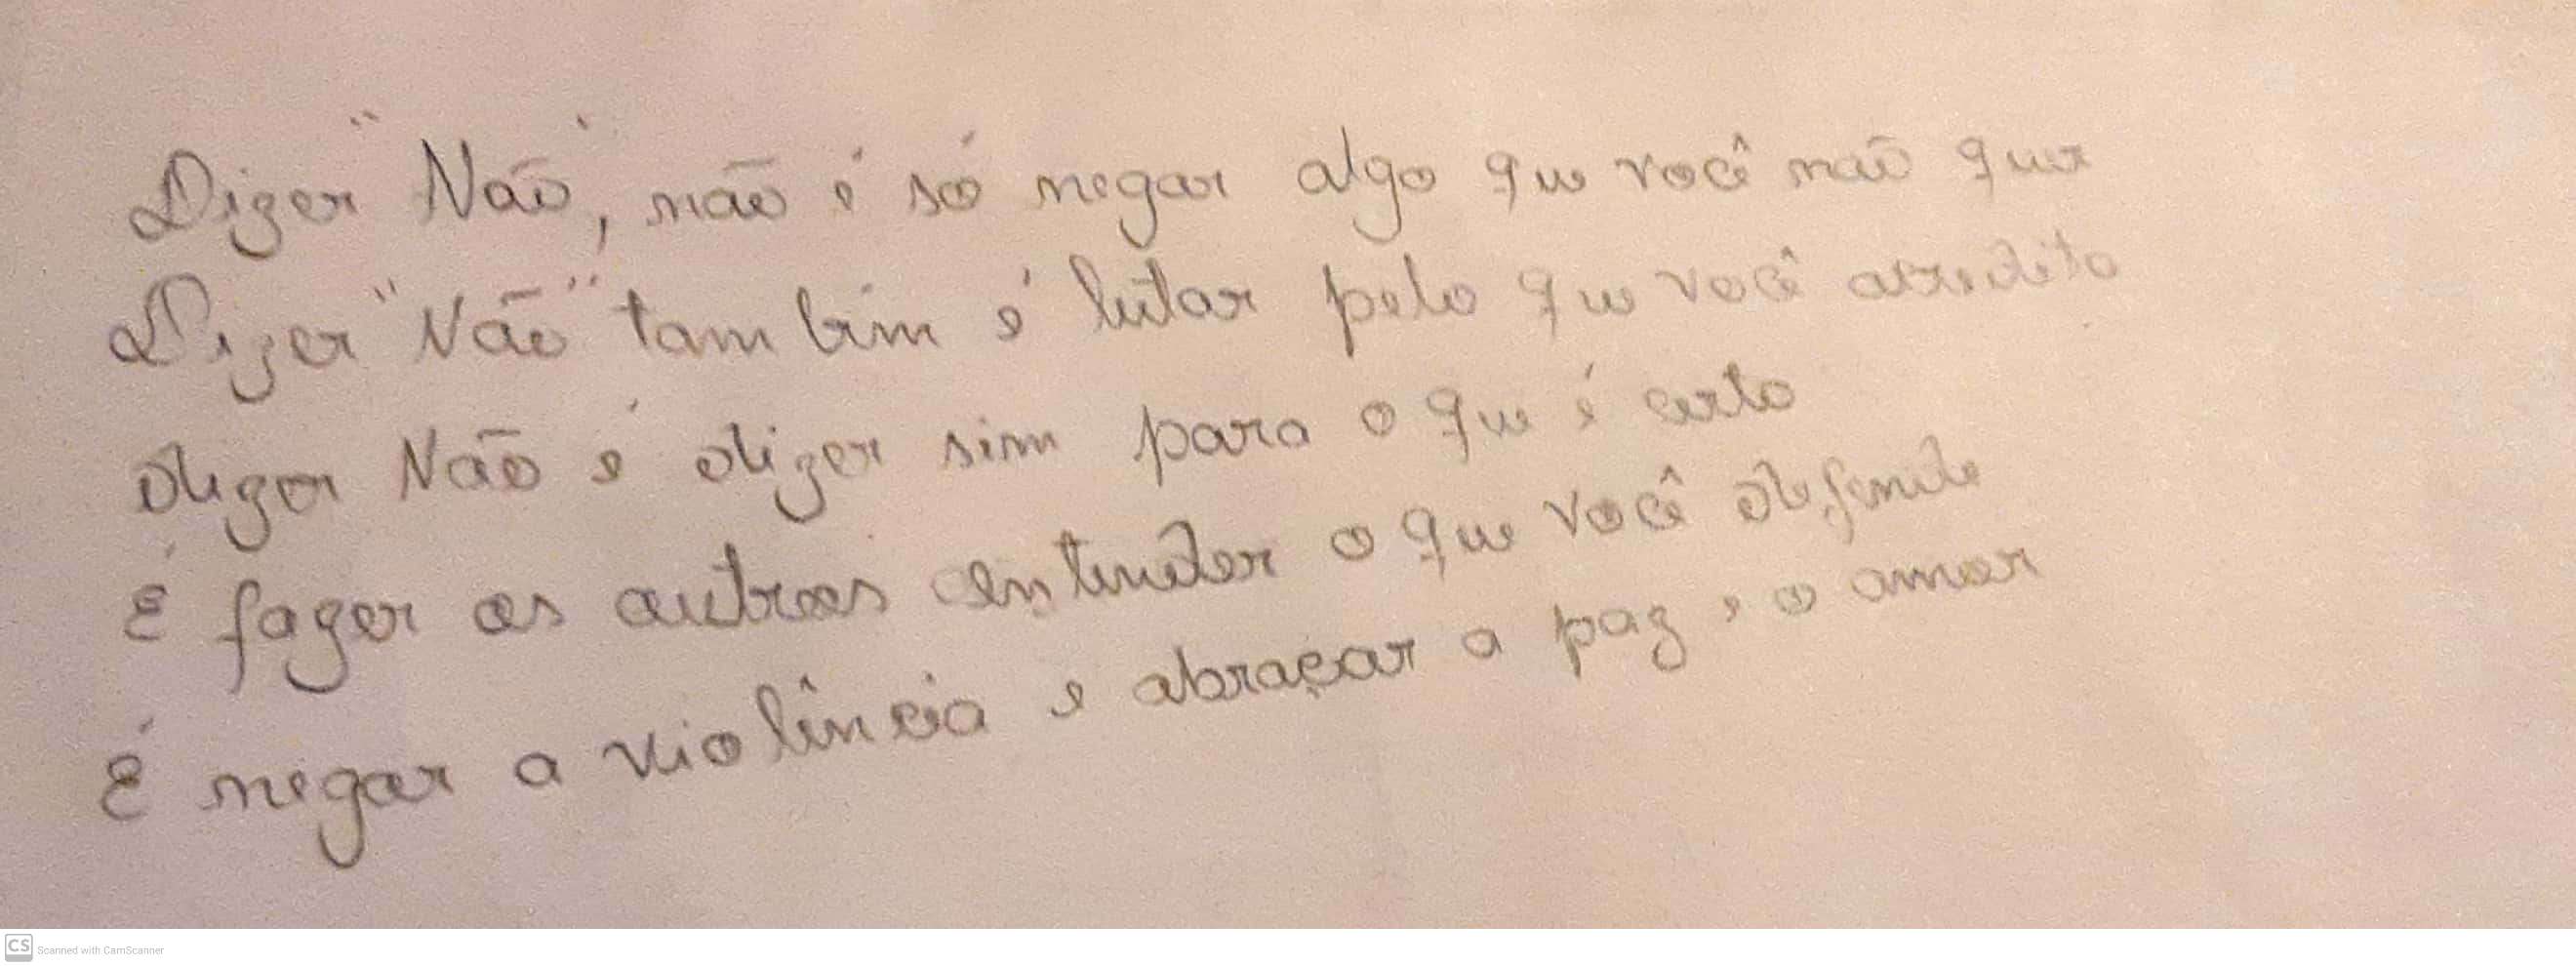 Dizer "Não", não é só negar algo que você não quer
Dizer "Não" também é lutar pelo que você acredita
dizer Não é dizer sim para o que é certo
É fazer os outros entender o que você defende
É negar a violência e abraçar a paz e o amor
CS Scanned with CamScanner